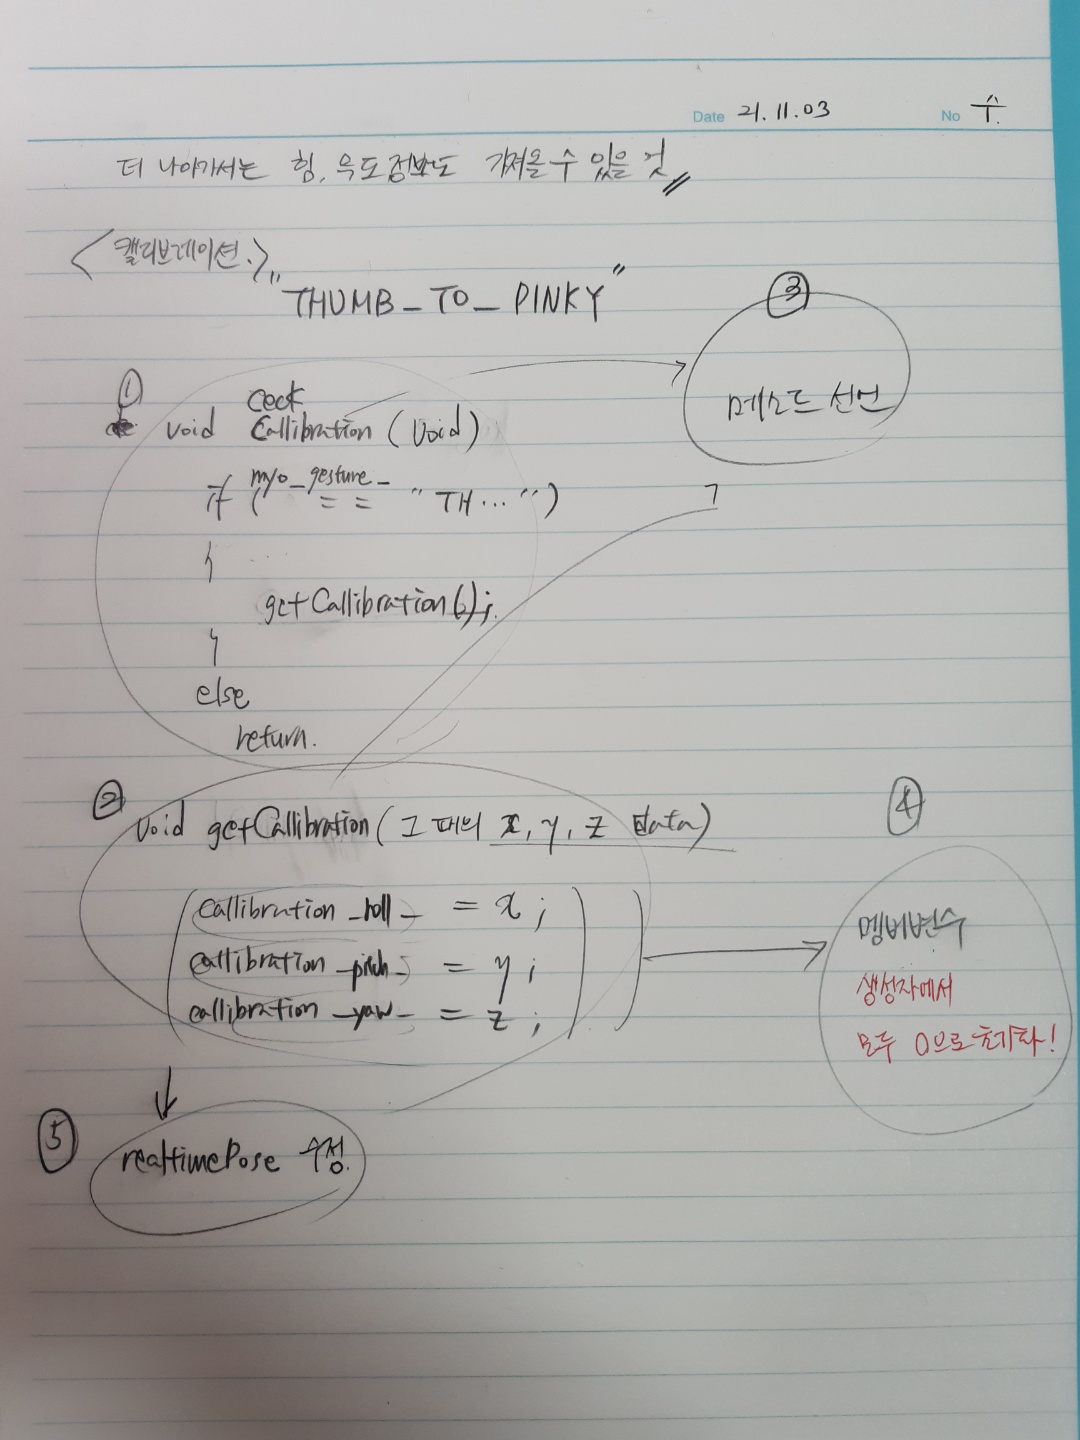 Date 21.11.03 No 수.
더 나아가서는 힘, 각도정보도 가져올 수 있을 것
<캘리브레이션.>
"THUMB_TO_PINKY"
③
메소드 선언
①
void Ceck Callibration (void)
if (myo_gesture_ == "TH...")
{
getCallibration();
}
else
return.
②
void getCallibration (그 때의 x, y, z data)
callibration_roll_ = x;
callibration_pitch_ = y;
callibration_yaw_ = z;
④
멤버변수
생성자에서
모두 0으로 초기화!
⑤
realtimePose 수정.